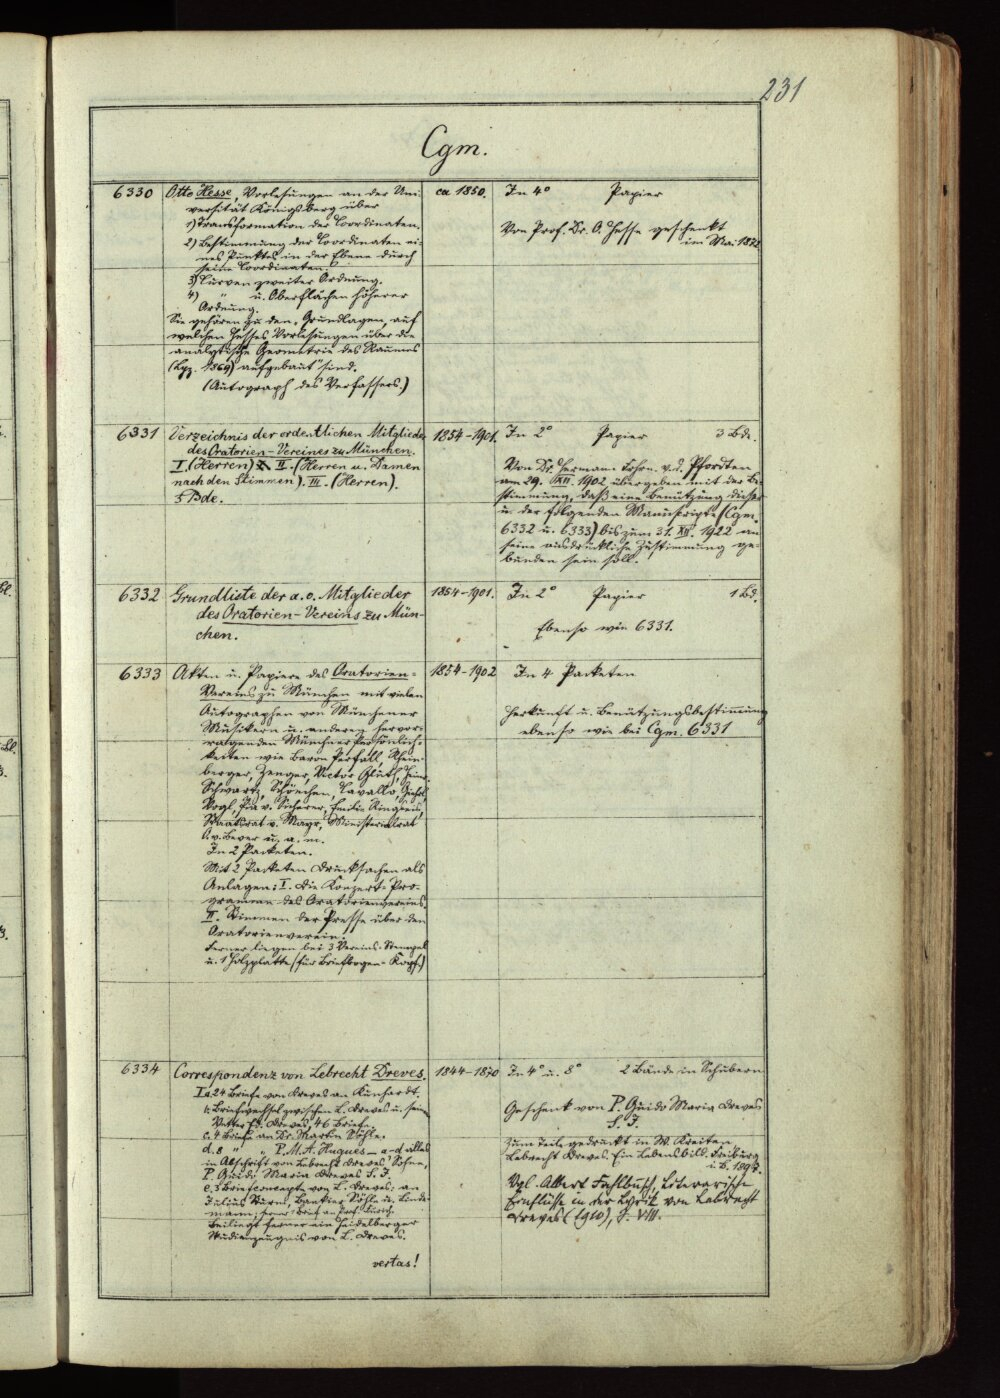 231
Cgm.
6330 Otto Hesse, Vorlesungen an der Uni-
versität Königsberg über
1) Transformation der Coordinaten.
2) Bestimmung der Coordinaten ei-
nes Punktes in der Ebene durch
seine Coordinaten.
3) Curven zweiter Ordnung.
4) " u. Oberflächen höherer
Ordnung.
Sie gehören zu den „Grundlagen, auf
welchen Hesses Vorlesungen über die
analytische Geometrie des Raumes
(Lpz. 1869) aufgebaut" sind.
(Autograph des Verfassers.)
ca 1850.
In 4° Papier
Von Prof. Dr. O. Hesse geschenkt
im Mai 1872
6331 Verzeichnis der ordentlichen Mitglieder
des Oratorien-Vereines zu München.
I. (Herren) II. (Herren u. Damen
nach den Stimmen). III. (Herren).
3 Bde.
1854-1901.
In 2° Papier 3 Bde.
Von Dr. Hermann Frhrn. v. d. Pfordten
am 29. XII. 1902 übergeben mit der Be-
stimmung, daß eine Benützung dieser
u. der folgenden Manuskripte (Cgm.
6332 u. 6333) bis zum 31. XII. 1922 an
seine ausdrückliche Zustimmung ge-
bunden sein soll.
6332 Grundliste der a.o. Mitglieder
des Oratorien-Vereins zu Mün-
chen.
1854-1901.
In 2° Papier 1 Bd.
Ebenso wie 6331.
6333 Akten u. Papiere des Oratorien-
Vereins zu München mit vielen
Autographen von Münchener
Musikern u. anderen hervor-
ragenden Münchner Persönlich-
keiten wie Baron Perfall, Rhein-
berger, Zenger, Victor Gluth, Heinr.
Schwartz, Schönchen, Cavallo,
Vogl, Pia v. Sicherer, Emilie Ringseis,
Staatsrat v. Mayr, Ministerialrat
u. a. m.
In 2 Packeten.
Mit 2 Packeten Drucksachen als
Anlagen: I. die Konzert-Pro-
gramme des Oratorienvereins.
II. Stimmen der Presse über den
Oratorienverein.
Ferner liegen bei 3 Vereins-Stempel
u. 1 Holzplatte (für Briefbogen-Kopf.)
1854-1902
In 4 Packeten
Herkunft u. Benützungsbestimmung
ebenso wie bei Cgm. 6331
6334 Correspondenz von Lebrecht Dreves.
I a. 24 Briefe von Dreves an Kunhardt.
b. Briefwechsel zwischen L. Dreves u. sein.
Vetter Ed. Dreves, 46 Briefe.
c. 4 Briefe an Dr. Martin Söhle.
d. 8 " " P. M. A. Hugues — a-d alles
in Abschrift von Lebrecht Dreves' Sohne,
P. Guido Maria Dreves S. J.
e. 3 Briefconcepte von L. Dreves: an
Julius Sturm, Bankier Söhle u. Linde-
mann; ferner: Brief an Prof.
Beiliegt ferner ein Heidelberger
Studienzeugnis von L. Dreves.
vertas!
1844-1870
In 4° u. 8° 2 Bände in Schubern
Geschenk von P. Guido Maria Dreves
S. J.
Zum Teile gedruckt in W. Kreiten,
Lebrecht Dreves. Ein Lebensbild. Freiburg
i. B. 1897.
Vgl. Albert Fahlbusch, Literarische
Einflüsse in der Lyrik von Lebrecht
Dreves (1910), S. VIII.